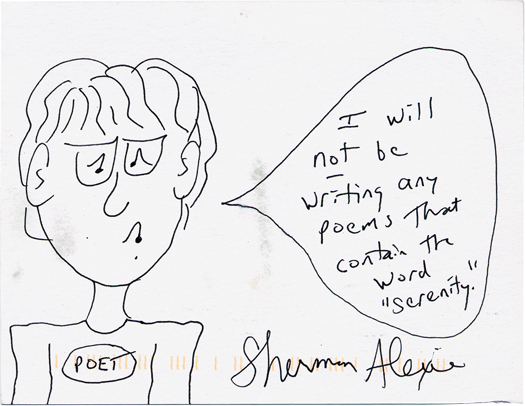 I will
not be
writing any
poems that
contain the
word
"serenity."
POET
Sherman Alexie